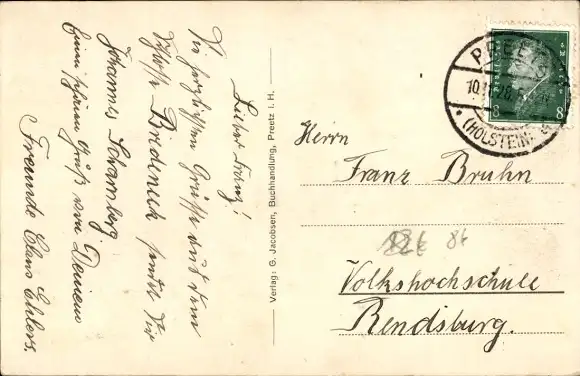 Lieber Franz!
Die herzlichsten Grüße aus dem
Schloße Bredeneek sendet Dir
Johannes Scharnberg
Einen schönen Gruß von Deinem
Freunde Claus Ehlers.
Verlag: G. Jacobsen, Buchhandlung, Preetz i. H.
PREETZ
(HOLSTEIN)
8 8
Herrn
Franz Bruhn
86
Volkshochschule
Rendsburg.